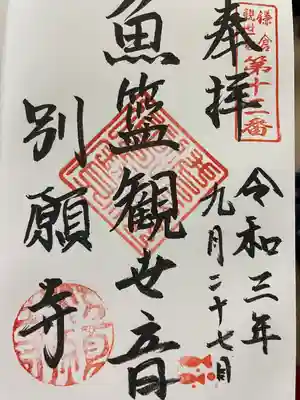 鎌倉
観世音
第十二番
奉拝
令和三年
九月二十七日
魚籃観世音
別願寺